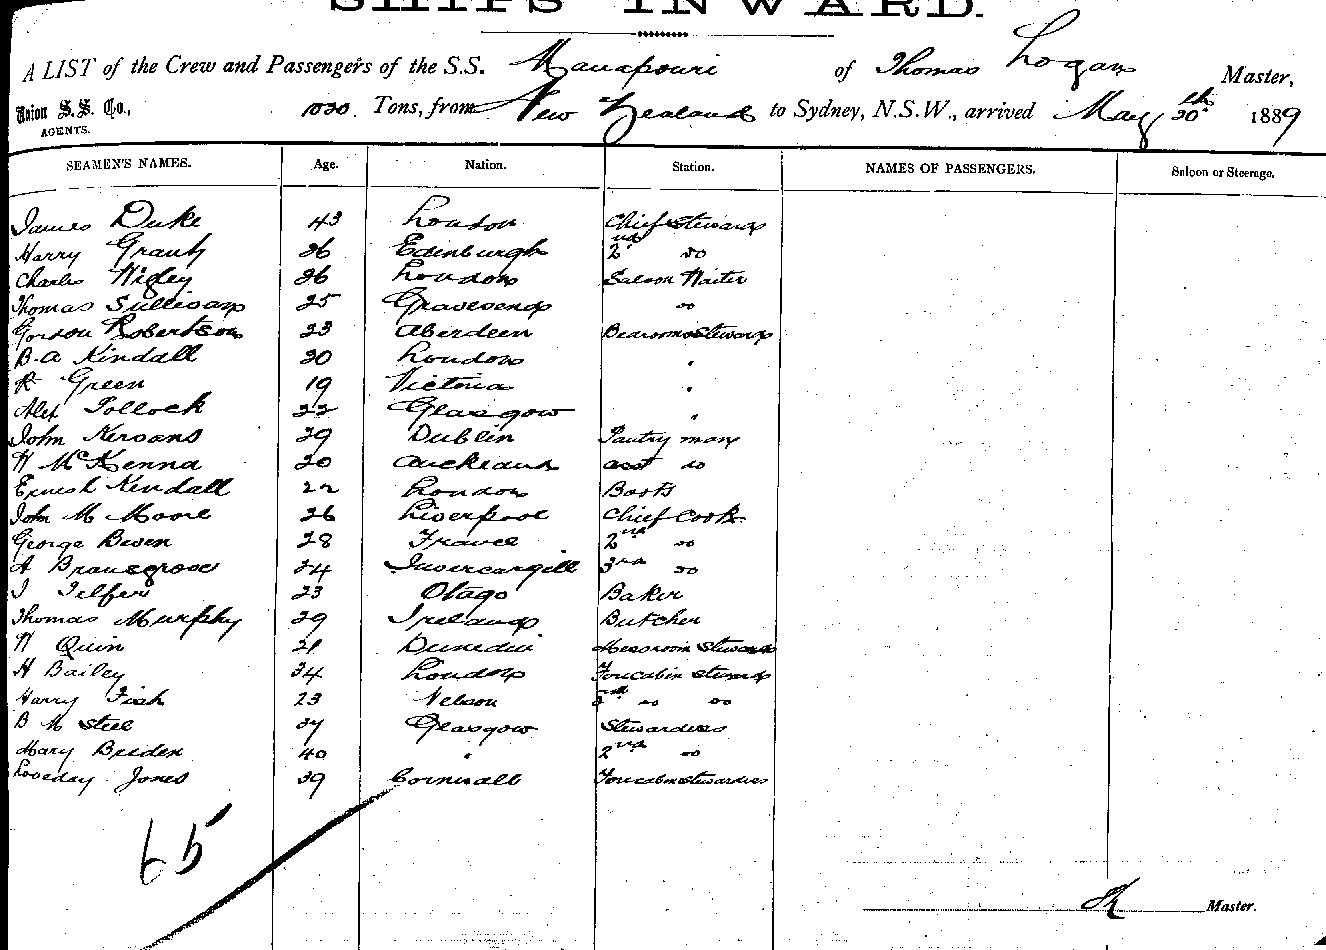 SHIPS INWARD.
A LIST of the Crew and Passengers of the S.S. Manapouri of Thomas Logan Master,
Union S.S. Co., AGENTS. 1020 Tons, from New Zealand to Sydney, N.S.W., arrived May 20th 1889
SEAMEN'S NAMES. Age. Nation. Station. NAMES OF PASSENGERS. Saloon or Steerage.
James Duke 43 London Chief Steward
Harry Grant 36 Edinburgh 2nd do
Charles Wigley 26 London Saloon Waiter
Thomas Sullivan 25 Gravesend do
Gordon Robertson 23 Aberdeen Bedroom Steward
B. A Kindall 20 London "
R Green 19 Victoria "
Alex Pollock 22 Glasgow "
John 29 Dublin Pantry man
W McKenna 20 Auckland asst do
Ernest Kendall 22 London Boots
John M Moore 26 Liverpool Chief Cook
George 28 France 2nd do
A Bransgrove 24 Invercargill 3rd do
J Telfer 23 Otago Baker
Thomas Murphy 29 Ireland Butcher
W Quin 21 Dunedin Messroom Steward
H Bailey 34 London Forecabin Steward
Harry Fish 23 Nelson do do
B M Steel 37 Glasgow Stewardess
Mary Breden 40 " 2nd do
Loveday Jones 39 Cornwall Forecabin Stewardess
65
Master.